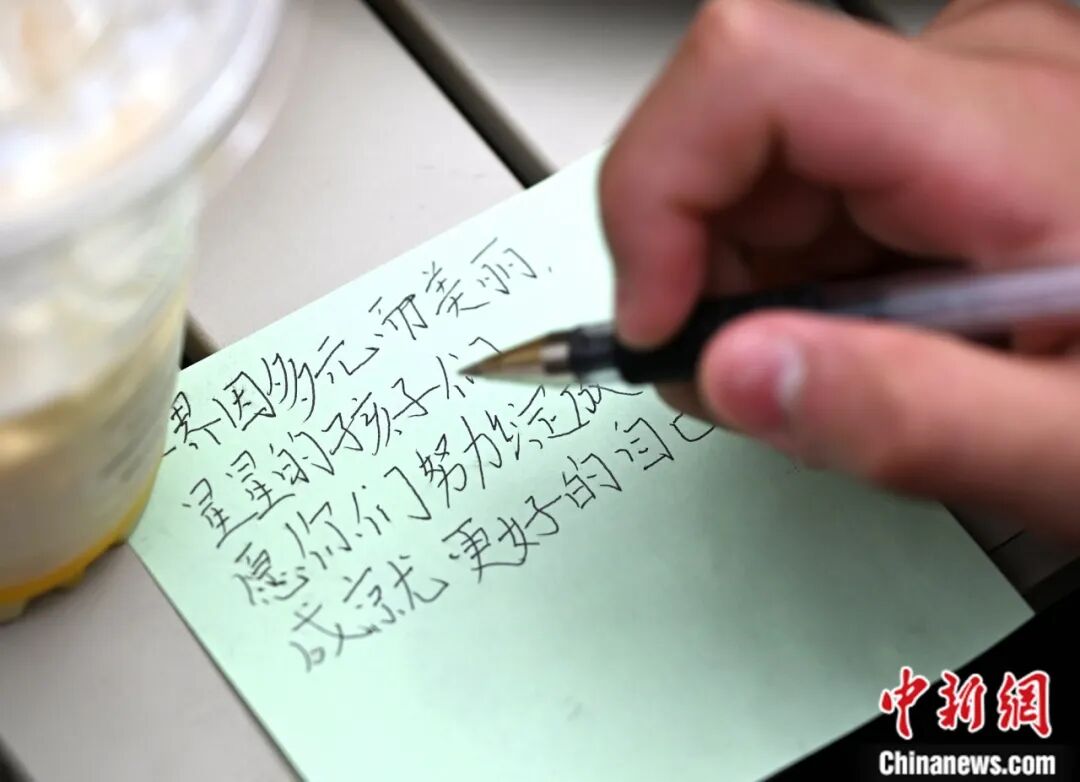 界因多元而美丽.
星星的孩子们
愿你们努力绽放
成就更好的自己
中新網
Chinanews.com